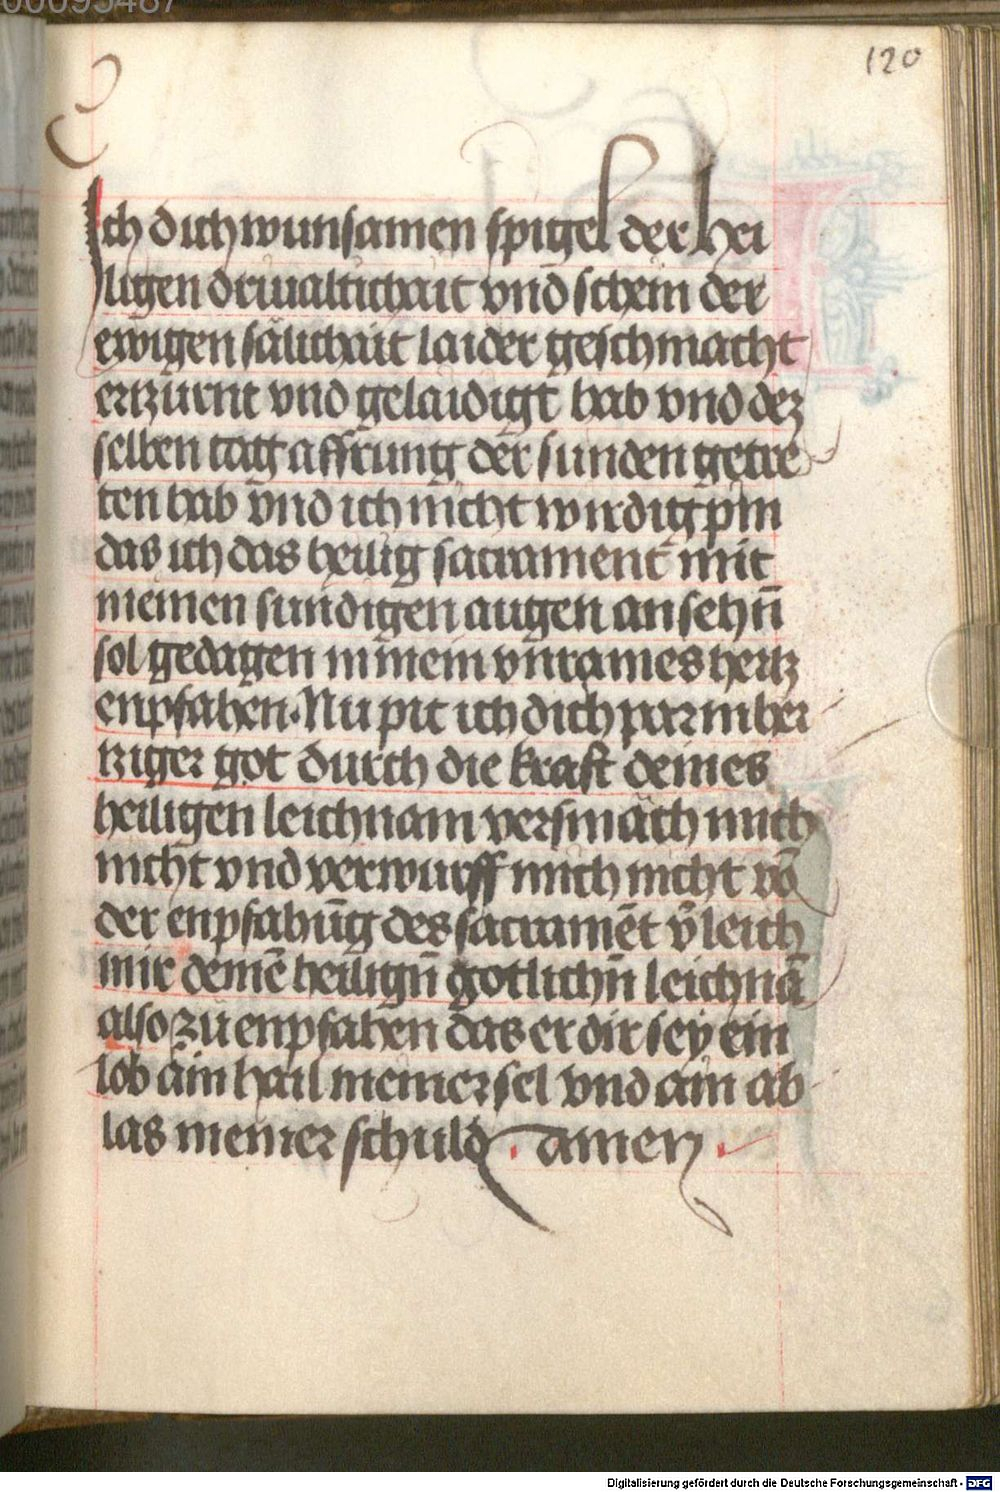 120
Ich dich wunsamen spigel der hei
ligen driualtichait vnd schein der
ewigen sälichait laider geschmächt
ertzürnt vnd gelaidigt hab vnd dez
selben tag affrung der sunden getre
ten hab vnd ich nicht wirdig pin
das ich das heilig sacrament mit
meinen sundigen augen an sehn̄
sol gedagen in mein vnraines hertz
enpfahen. Nu pit ich dich parmher
tziger got durch die kraft deines
heiligen leichnam versmäch mich
nicht vnd verwurff mich nicht vō
der enpfahūg des sacramēt v̄leich
mir deinē heilign̄ gotlichn̄ leichnā
also zu enpfahen das er dir sey ein
lob ain hail meiner sel vnd ain ab
las meiner schuld. amen.
Digitalisierung gefördert durch die Deutsche Forschungsgemeinschaft - DFG